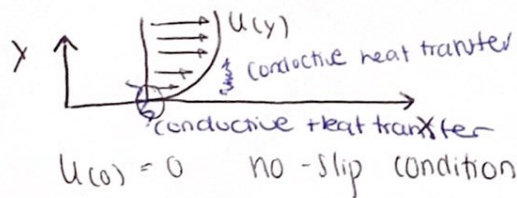 u(y)
y
conductive heat tranfer
x
conductive heat tranfer
u(0) = 0 no-slip condition